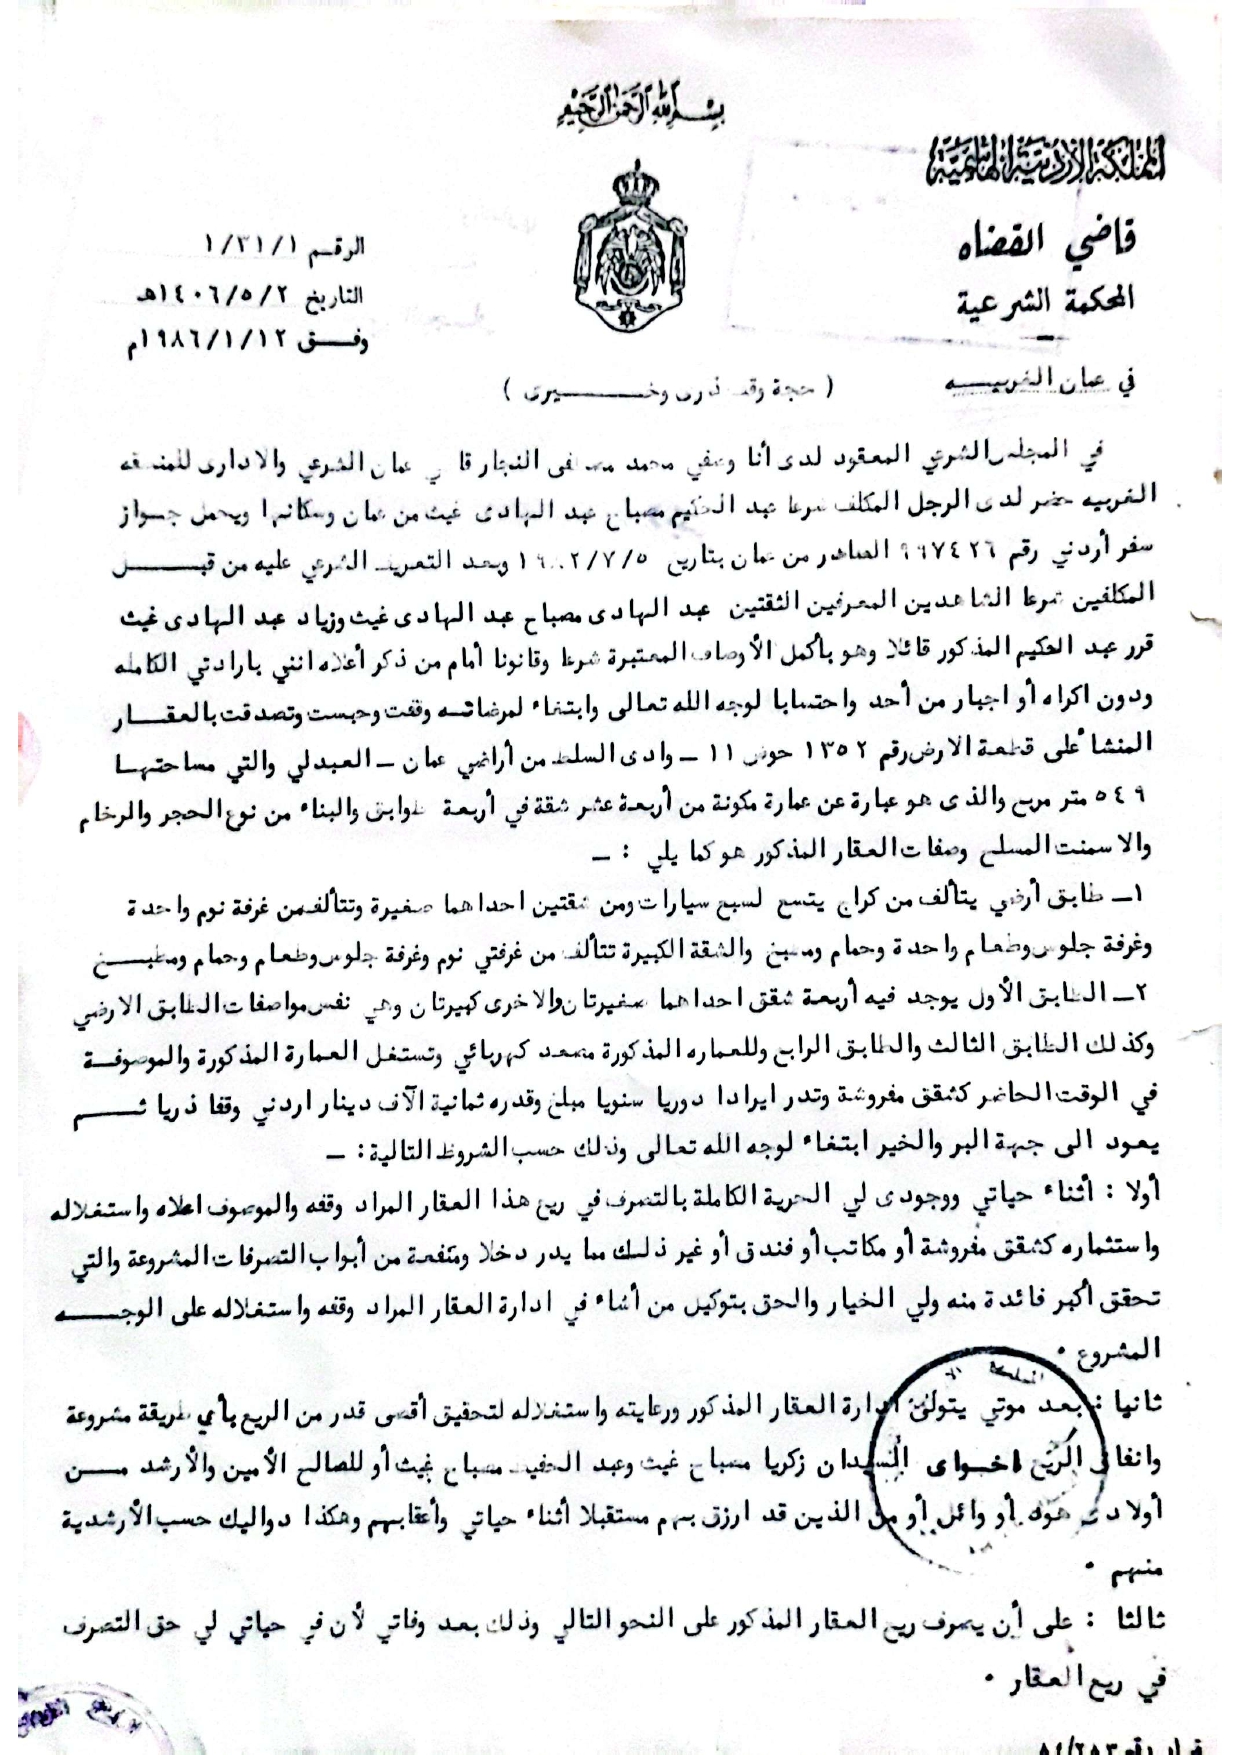 بسم الله الرحمن الرحيم
المملكة الأردنية الهاشمية
قاضي القضاه
المحكمة الشرعية
في عمان الغربيـــه
الرقم ١/٣١/١
التاريخ ١٤٠٦/٥/٢هـ
وفــق ١٩٨٦/١/١٢م
( حجة وقف ذرى وخـــــــيرى )
في المجلس الشرعي المعقود لدى أنا وصفي محمد مصطفى النجار قاضي عمان الشرعي والادارى للمنطقه
الغربيه حضر لدى الرجل المكلف شرعا عبد الحكيم مصباح عبد الهادى غيث من عمان وسكانها ويحمل جــواز
سفر أردني رقم ٩٦٧٤٢٦ الصادر من عمان بتاريخ ١٩٨٢/٧/٥ وبعد التعريف الشرعي عليه من قبــــــل
المكلفين شرعا الشاهدين المعرفين الثقتين عبد الهادى مصباح عبد الهادى غيث وزياد عبد الهادى غيث
قرر عبد الحكيم المذكور قائلا وهو بأكمل الأوصاف المعتبرة شرعا وقانونا أمام من ذكر أعلاه انني بارادتي الكامله
ودون اكراه أو اجبار من أحد واحتسابا لوجه الله تعالى وابتغاء لمرضاتـه وقفت وحبست وتصدقت بالعقــار
المنشأ على قطعة الارض رقم ١٣٥٢ حوض ١١ ــ وادى السلط من أراضي عمان ــ العبدلي والتي مساحتهــا
٥٤٩ متر مربع والذى هو عبارة عن عمارة مكونة من أربعة عشر شقة في أربعة طوابق والبناء من نوع الحجر والرخام
والاسمنت المسلح وصفات العقار المذكور هو كما يلي : ــ
١ــ طابق أرضي يتألف من كراج يتسع لسبع سيارات ومن شقتين احداهما صغيرة وتتألف من غرفة نوم واحدة
وغرفة جلوس وطعام واحدة وحمام ومطبخ والشقة الكبيرة تتألف من غرفتي نوم وغرفة جلوس وطعام وحمام ومطبــخ
٢ــ الطابق الأول يوجد فيه أربعة شقق احداهما صغيرتان والاخرى كبيرتان وهي نفس مواصفات الطابق الارضي
وكذلك الطابق الثالث والطابق الرابع وللعماره المذكورة مصعد كهربائي وتستغل العمارة المذكورة والموصوفــة
في الوقت الحاضر كشقق مفروشة وتدر ايرادا دوريا سنويا مبلغ وقدره ثمانية آلاف دينار اردني وقفا ذريا ثـــــم
يعود الى جهة البر والخير ابتغاء لوجه الله تعالى وذلك حسب الشروط التالية : ــ
أولا : أثناء حياتي ووجودى لي الحرية الكاملة بالتصرف في ريع هذا العقار المراد وقفه والموصوف اعلاه واستغلاله
واستثماره كشقق مفروشة أو مكاتب أو فندق أو غير ذلك مما يدر دخلا ومنفعة من أبواب التصرفات المشروعة والتي
تحقق أكبر فائدة منه ولي الخيار والحق بتوكيل من أشاء في ادارة العقار المراد وقفه واستغلاله على الوجــــه
المشروع ٠
ثانيا : بعد موتي يتولى ادارة العقار المذكور ورعايته واستغلاله لتحقيق أقصى قدر من الريع بأي طريقة مشروعة
وانفاق الريع اخواى السيدان زكريا مصباح غيث وعبد الحفيظ مصباح غيث أو للصالح الأمين والأرشد مـــن
أولادى أو وائل أو من الذين قد ارزق بهم مستقبلا أثناء حياتي وأعقابهم وهكذا دواليك حسب الأرشدية
منهم ٠
ثالثا : على أن يصرف ريع العقار المذكور على النحو التالي وذلك بعد وفاتي لأن في حياتي لي حق التصرف
في ريع العقار ٠